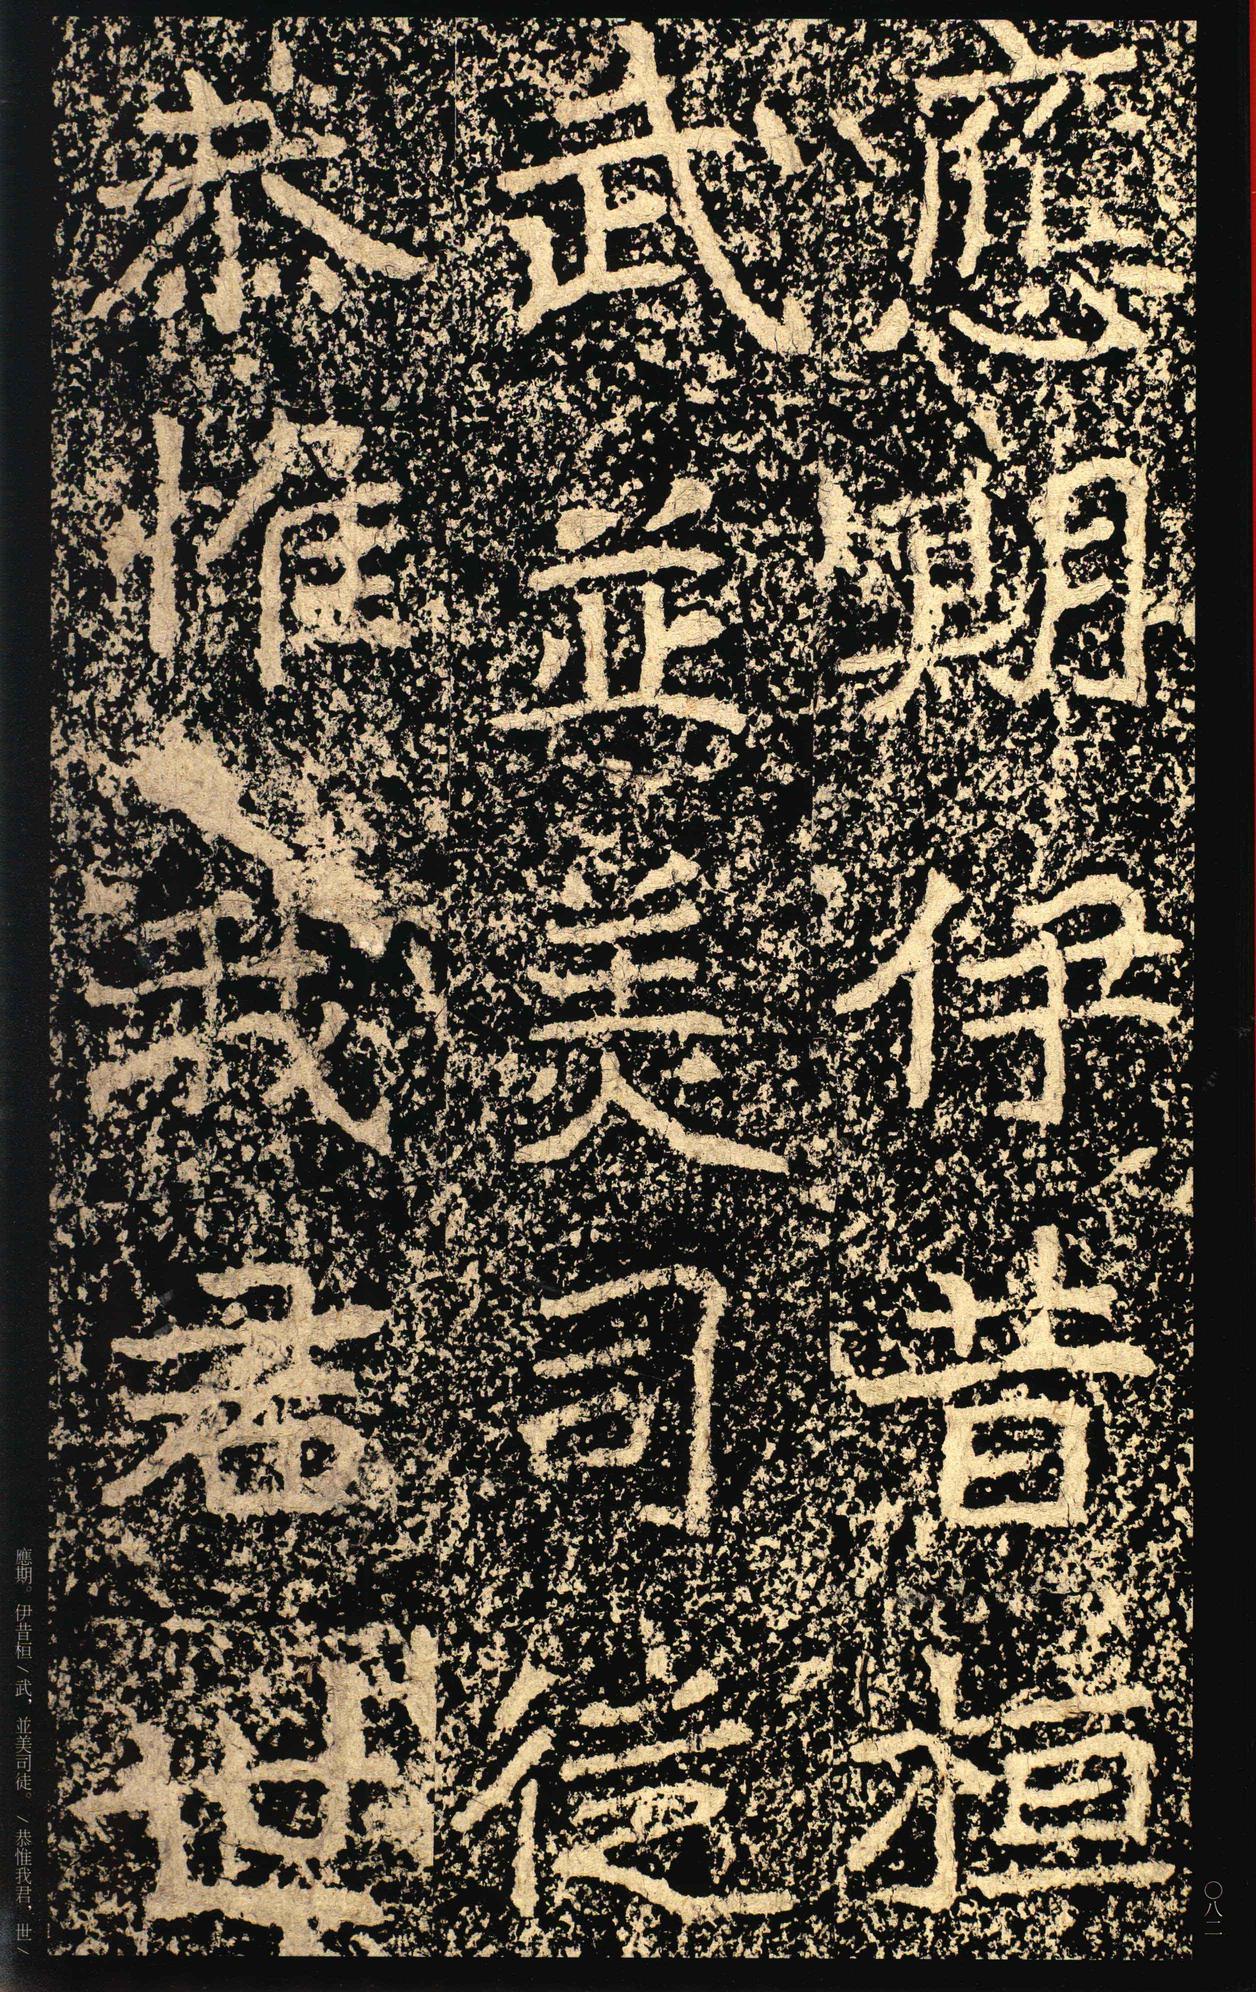 應期伊昔桓
武並美司徒
恭惟我君世
應期。伊昔桓/武，並美司徒。/恭惟我君，世/
〇八二